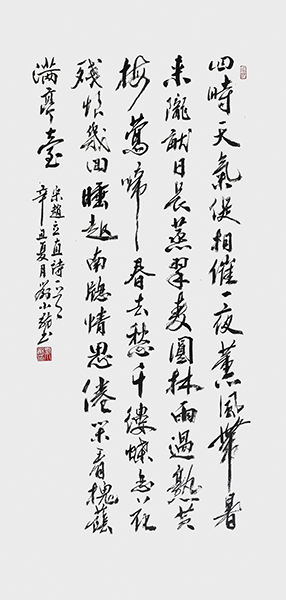 四時天氣促相催一夜薰風帶暑
来隴畝日長蒸翠麦園林雨過熟黄
梅鶯啼春去愁千縷蝶恋花
殘恨幾回睡起南牕情思倦閑看槐蔭
满亭臺
宋趙友直詩一首
辛丑夏月小书